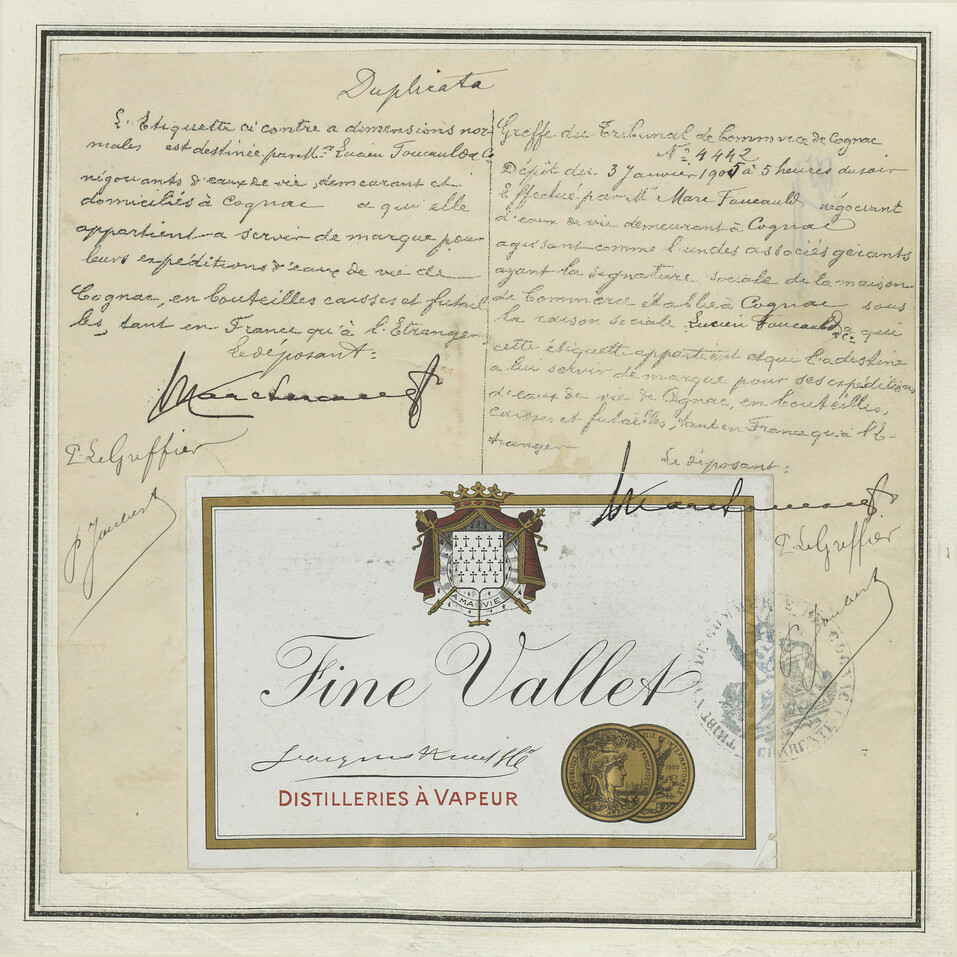 Duplicata
L'Etiquette ci contre a demensions nor-
males est destinée par M.rs Lucien Foucauld & Co
négociants d'eaux de vie, demeurant et
domiciliés à Cognac a qui elle
appartient a servir de marque pour
leurs expéditions d'eaux de vie de
Cognac, en bouteilles caisses et futail
les, tant en France qu'à l'Etranger
Le déposant:
P. Le Greffier
P. Jaubert
Greffe du Tribunal de Commerce de Cognac
No. 4442
Dépôt du 3 Janvier 1905 à 5 heures du soir
Effectué par M. Marc Foucauld négociant
d'eaux de vie demeurant à Cognac
agissant comme l'un des associés gérants
ayant la signature sociale de la maison
de Commerce établie à Cognac sous
la raison sociale Lucien Foucauld & Co. a qui
cette étiquette appartient et qui l'a destine
a lui servir de marque pour ses expéditions
d'eaux de vie de Cognac, en bouteilles,
caisses et futailles, tant en France qu'à l'E-
tranger
Le déposant:
P. Le Greffier
P. Jaubert
A MA VIE
Fine Vallet
DISTILLERIES À VAPEUR
REPUBLIQUE FRANÇAISE
INTERNATIONALE
1900
TRIBUNAL DE COMMERCE DE COGNAC
CHARENTE